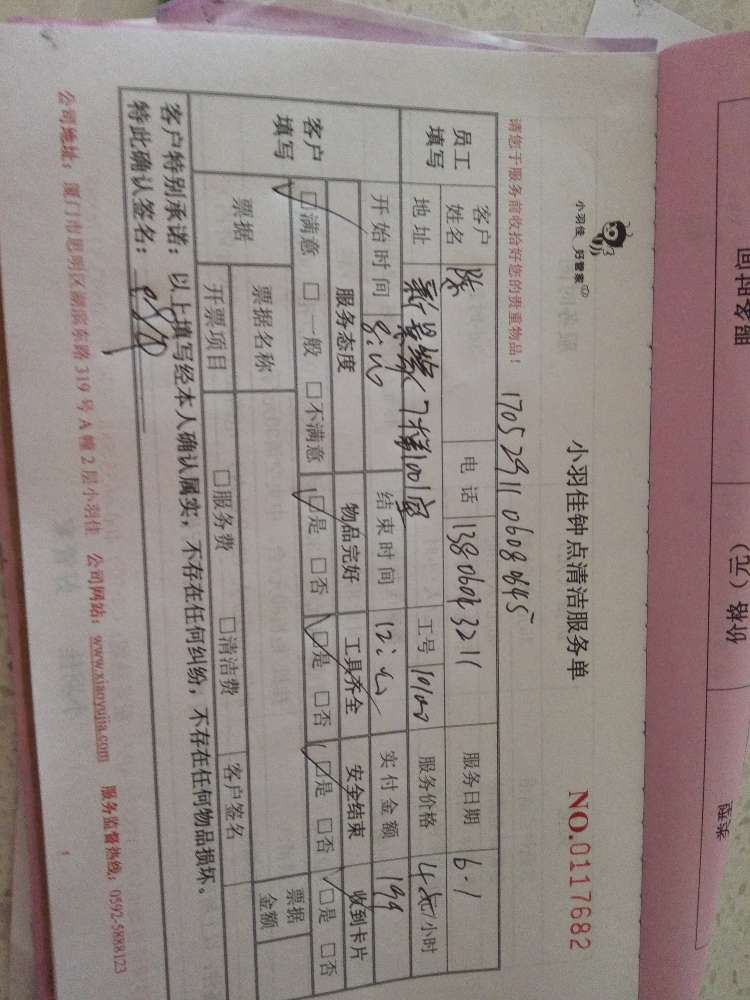 小羽佳 好管家
小羽佳钟点清洁服务单
NO.0117682
请您于服务前收拾好您的贵重物品!
员工填写
客户姓名 陈
电话
服务日期 6-1
地址
7楼1001室
工号
服务价格
元/小时
客户填写
开始时间 8:00
结束时间 12:00
实付金额 199
服务态度 物品完好 工具齐全 安全结束 收到卡片
☑满意 □一般 □不满意 ☑是 □否 ☑是 □否 ☑是 □否 ☑是 □否
票据
票据名称
客户签名
票据金额
开票项目 □服务费 □清洁费
客户特别承诺:以上填写经本人确认属实,不存在任何纠纷,不存在任何物品损坏。
特此确认签名:
公司地址:厦门市思明区湖滨东路319号A幢2层小羽佳 公司网站:www.xiaoyujia.com 服务监督热线:0592-5888123
1